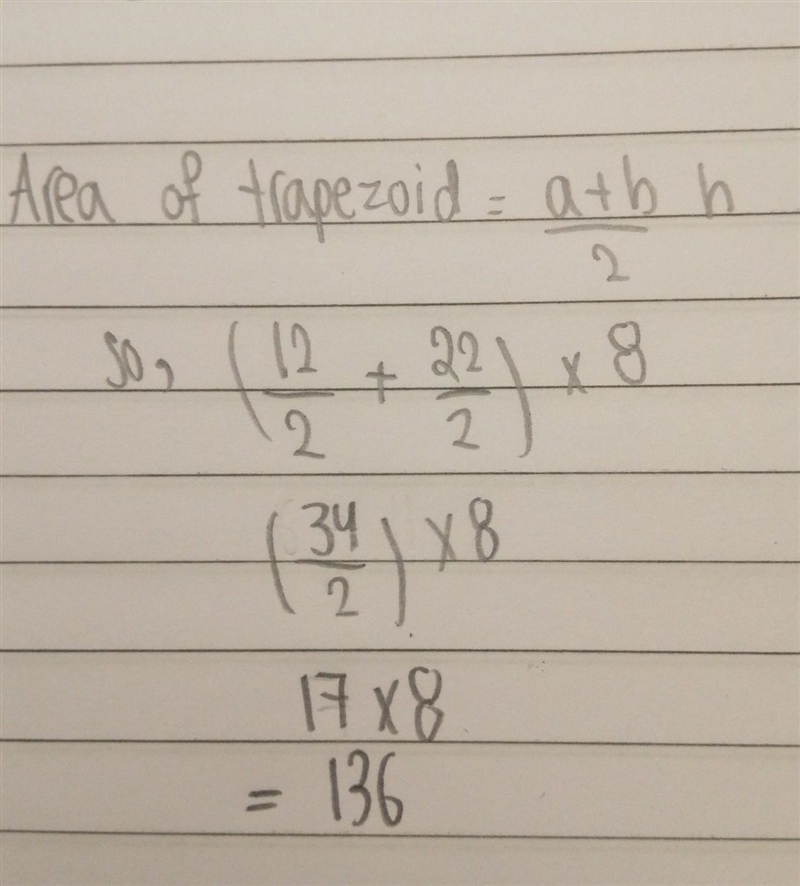 Area of trapezoid = \frac{a+b}{2} h
so, (\frac{12}{2} + \frac{22}{2}) x 8
(\frac{34}{2}) x 8
17 x 8
= 136